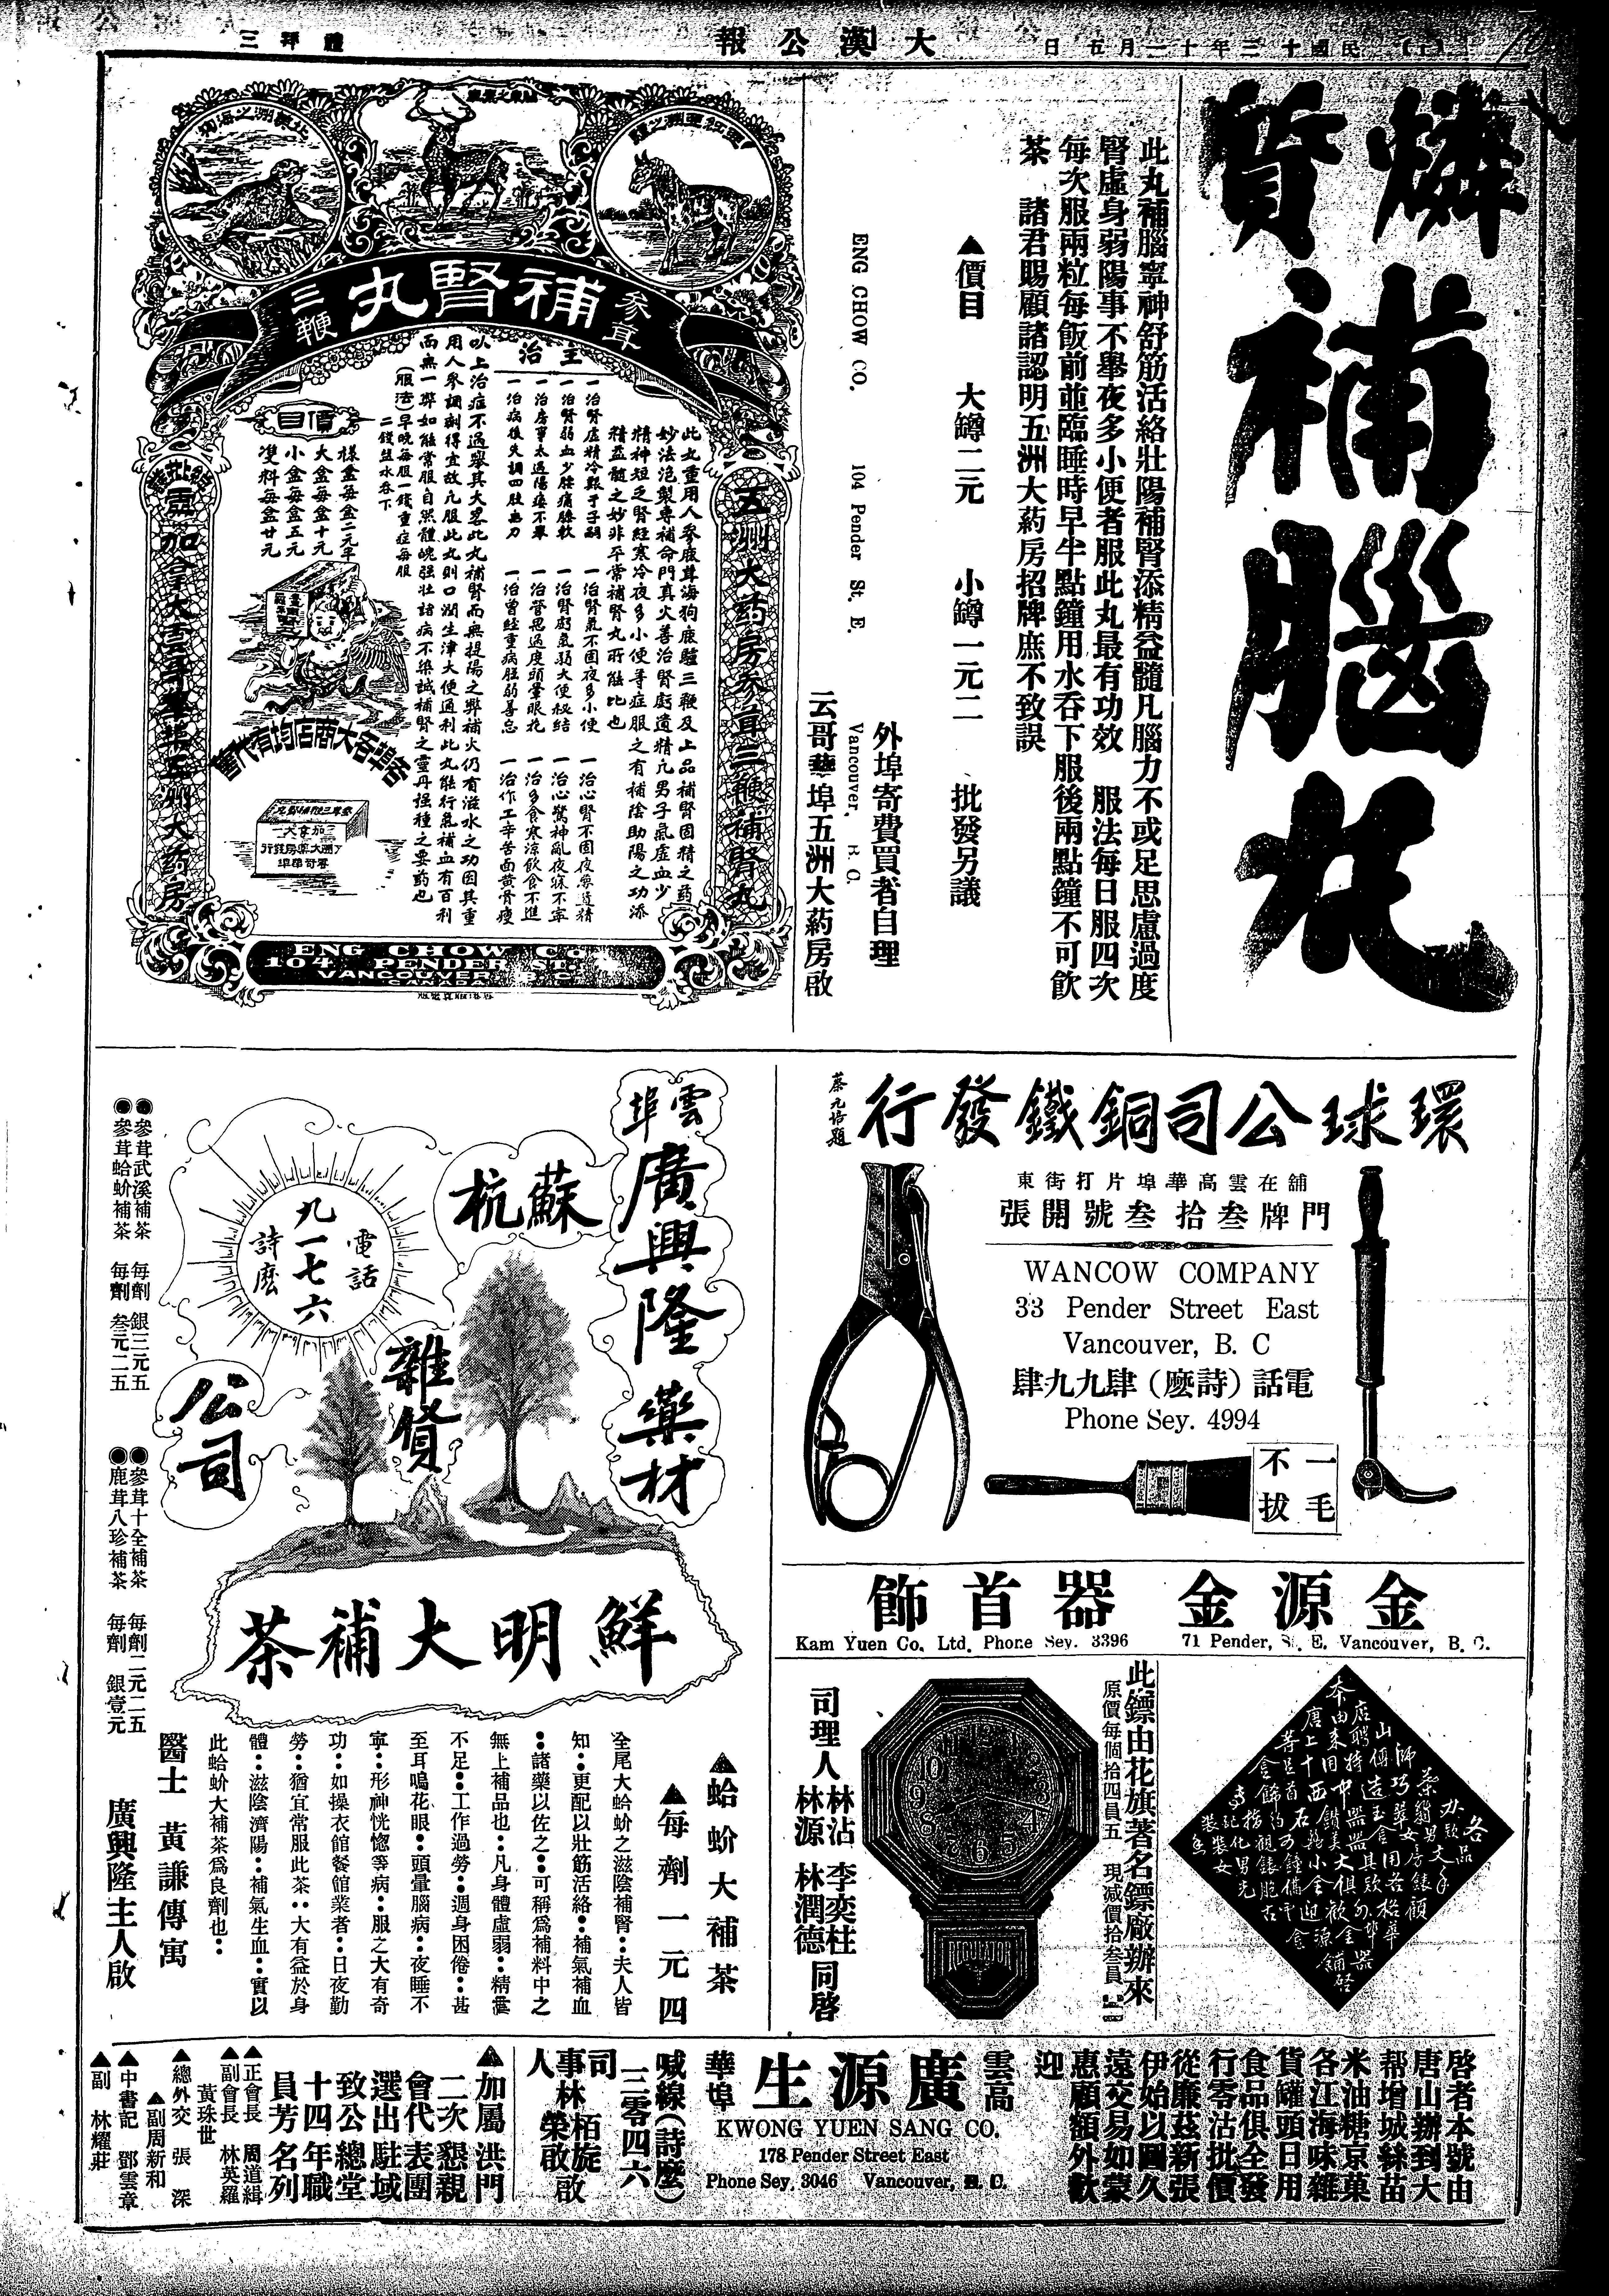 大漢公報
燐質補腦丸
此丸補腦寧神舒筋活絡壯陽補腎添精益髓凡腦力不或足思慮過度
腎虛身弱陽事不舉夜多小便者服此丸最有功效　服法每日服四次
每次服兩粒每飯前並臨睡時早半點鐘用水吞下服後兩點鐘不可飲
茶　諸君賜顧諸認明五洲大葯房招牌庶不致誤
▲價目　大罇二元　小罇一元二　批發另議
外埠寄費買者自理
ENG CHOW CO. 104 Pender St. E. Vancouver, B. C.
云哥華埠五洲大葯房啟
參茸
補腎丸
三鞭
五洲大药房參茸三鞭補腎丸
此丸重用人參鹿茸海狗鹿驢三鞭及上品補腎固精之葯
妙法泡製專補命門真火善治腎虧遺精凡男子氣虛血少
精神短乏腎經寒冷夜多小便等症服之有補陰助陽之功添
精益髓之妙非平常補腎丸所能比也
主治
一治腎虛精冷艱于子嗣
一治腎氣不固夜多小便
一治心腎不固夜夢遺精
一治腎弱血少腰痛膝軟
一治腎虧氣弱大便秘結
一治心驚神亂夜寐不寧
一治房事太過陽痿不舉
一治管思過度頭暈眼花
一治多食寒涼飲食不進
一治病後失調四肢無力
一治曾經重病脛弱善忘
一治作工辛苦面黃骨瘦
以上治症不過舉其大畧此丸補腎而無提陽之弊補火仍有滋水之功因其重
用人參調劑得宜故凡服此丸則口潤生津大便通利此丸能行氣補血有百利
而無一弊如能常服自然體魄强壯諸病不染誠補腎之靈丹强種之要葯也
(服法)早晚每服一錢重症每服
二錢鹽水吞下
價目
樣盒每盒二元半
大盒每盒十元
小盒每盒五元
雙料每盒廿元
各埠各大商店均有代售
ENG CHOW Co.
104 PENDER ST. E.
VANCOUVER, B. C.
CANADA
環球公司銅鐵發行
蔡元培題
舖在雲高華埠片打街東
門牌叁拾叁號開張
WANCOW COMPANY
33 Pender Street East
Vancouver, B. C
電話(詩麽)肆九九肆
Phone Sey. 4994
一毛
不拔
雲埠
廣興隆藥材
蘇杭
雜貨
公司
電話
九一七六
詩麽
鮮明大補茶
●參茸武溪補茶　每劑　銀三元五
●參茸蛤蚧補茶　每劑　叁元二五
●參茸十全補茶　每劑二元二五
●鹿茸八珍補茶　每劑　銀壹元
▲蛤蚧大補茶
▲每劑一元四
全尾大蛤蚧之滋陰補腎：夫人皆
知：更配以壯筋活絡：補氣補血
：諸藥以佐之：可稱爲補料中之
無上補品也：凡身體虛弱：精神
不足：工作過勞：週身困倦：甚
至耳鳴花眼：頭暈腦病：夜睡不
寧：形神恍惚等病：服之大有奇
功：如操衣館餐館業者：日夜勤
勞：猶宜常服此茶：大有益於身
體：滋陰濟陽：補氣生血：實以
此蛤蚧大補茶爲良劑也：
醫士　黃謙傳寓
廣興隆主人啟
金源金器首飾
Kam Yuen Co. Ltd. Phone Sey. 3396 71 Pender, St. E. Vancouver, B. C.
此鏢由花旗著名鏢廠辦來
原價每個拾四員五　現減價拾叁員
REGULATOR
司理人　林沾　李奕柱
林源　林潤德　同啓
啓者本號由
唐山辦到大
帮增城絲苗
米油糖京菓
各江海味雜
貨罐頭日用
食品俱全發
行零沽批價
從廉茲新張
伊始以圖久
遠交易如蒙
惠顧額外歡
迎
雲高華埠
廣源生
KWONG YUEN SANG CO.
178 Pender Street East
Phone Sey. 3046 Vancouver, B. C.
喊線(詩麽)
三零四六
司事人　林栢旋　榮啟
▲加屬洪門
二次懇親
會代表團
選出駐域
致公總堂
十四年職
員芳名列
▲正會長　周道緝
▲副會長　林英羅
黃珠世
▲總外交　張深
▲副周新和
▲中書記　鄧雲章
▲副　林耀莊